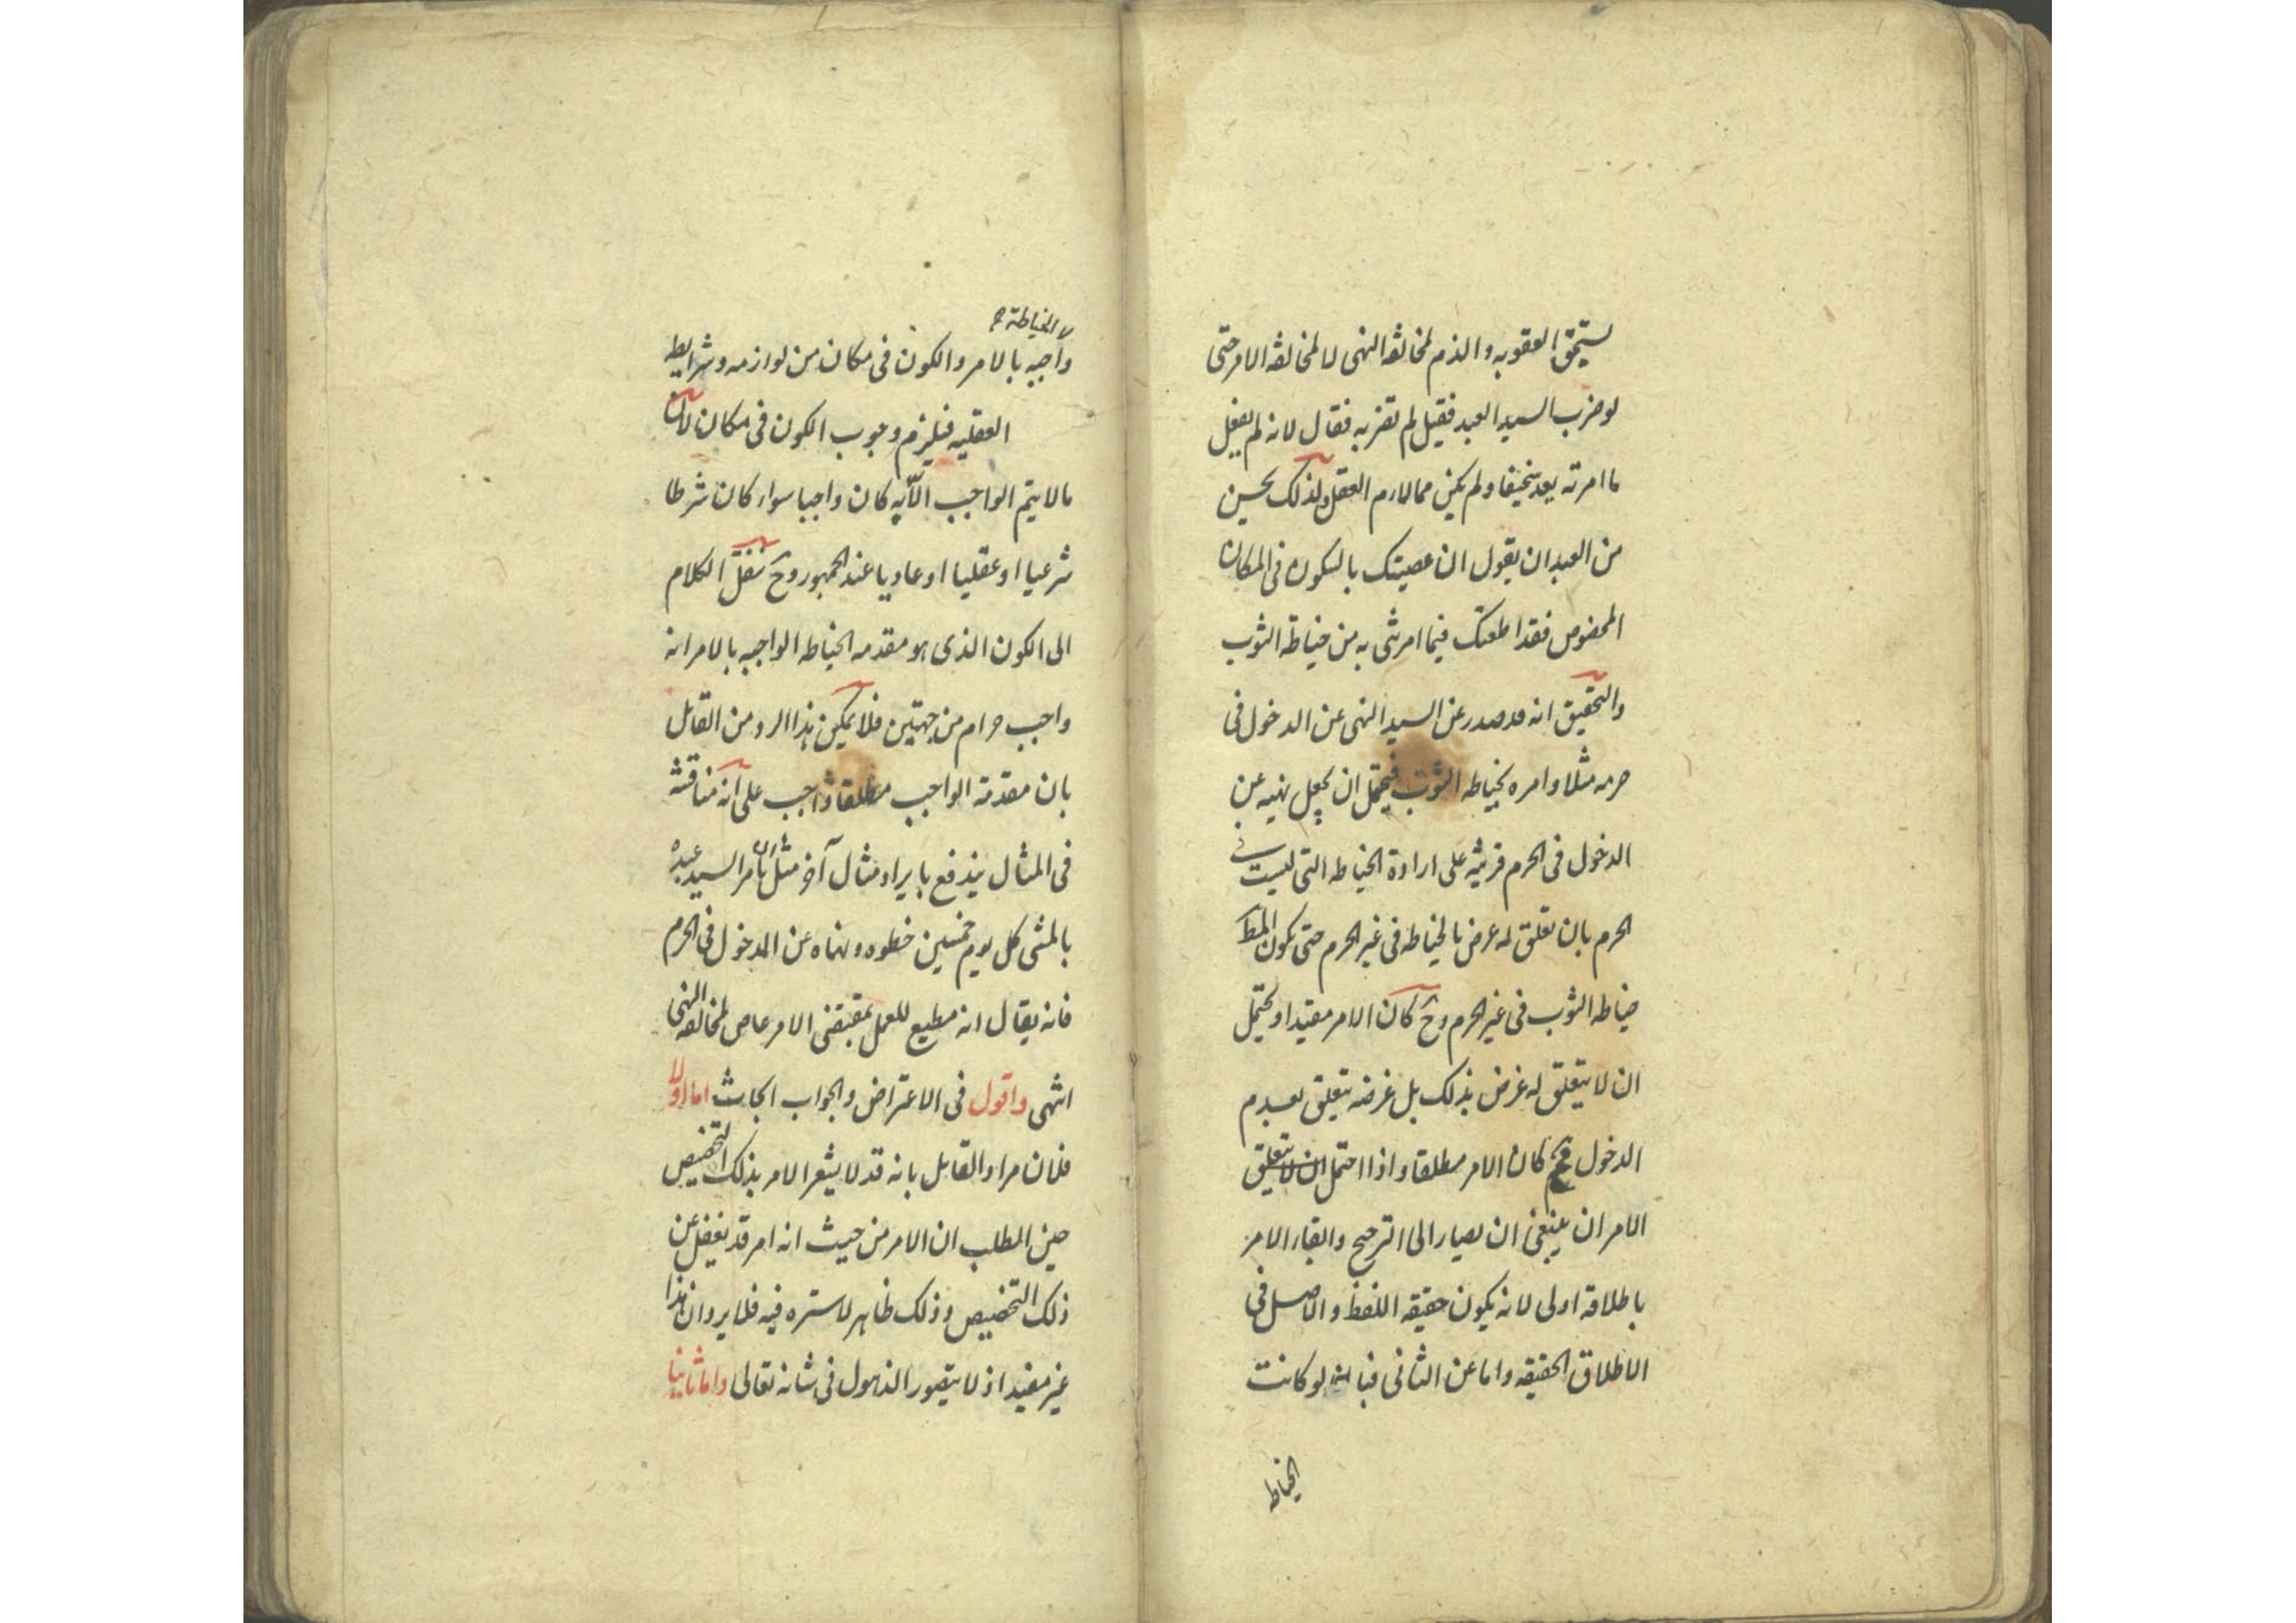 يستحق العقوبه والذم لمخالفه النهى لا لمخالفه الامر حتى
لو ضرب السيد العبد فقيل لم تضربه فقال لانه لم يفعل
ما امرته يعد سخيفا ولم يكن مما لارم العقل ولذلك يحسن
من العبد ان يقول ان عصيتك بالسكون فى المكان
المخصوص فقد اطعتك فيما امرتنى به من خياطة الثوب
والتحقيق انه قد صدر عن السيد النهى عن الدخول فى
حرمه مثلا وامره بخياطه الثوب فيحتمل ان يجعل نهيه عن
الدخول فى الحرم قرينه على ارادة الخياطه التى ليست فى
الحرم بان تعلق له غرض بالخياطه فى غير الحرم حتى يكون المط
خياطه الثوب فى غير الحرم وح كان الامر مقيدا ويحتمل
ان لا يتعلق له غرض بذلك بل غرضه يتعلق بعدم
الدخول فح كان الامر مطلقا واذا احتمل ان لا يتعلق
الامران ينبغى ان يصار الى الترجيح وابقاء الامر
باطلاقه اولى لانه يكون حقيقه اللفظ والاصل فى
الاطلاق الحقيقه واما عن الثانى فبانه لو كانت
الخياطه
الخياطة
واجبه بالامر والكون فى مكان من لوازمه وشرايطه
العقليه فيلزم وجوب الكون فى مكان لان
ما لا يتم الواجب الا به كان واجبا سواء كان شرطا
شرعيا او عقليا او عاديا عند الجمهور وح ننقل الكلام
الى الكون الذى هو مقدمه الخياطه الواجبه بالامر انه
واجب حرام من جهتين فلا يمكن هذا الرد من القائل
بان مقدمة الواجب مطلقا واجب على انه مناقشه
فى المثال يندفع بايراد مثال آخر مثل ان يأمر السيد عبده
بالمشى كل يوم خمسين خطوه ونهاه عن الدخول فى الحرم
فانه يقال انه مطيع للعمل بمقتضى الامر عاص لمخالفه النهى
انتهى واقول فى الاعتراض والجواب ابحاث اما اولا
فلان مراد القايل بانه قد لا يشعر الامر بذلك التخصيص
حين الطلب ان الامر من حيث انه امر قد يغفل عن
ذلك التخصيص وذلك ظاهر لا ستره فيه فلا يرد ان هذا
غير مفيد اذ لا يتصور الذهول فى شانه تعالى واما ثانيا